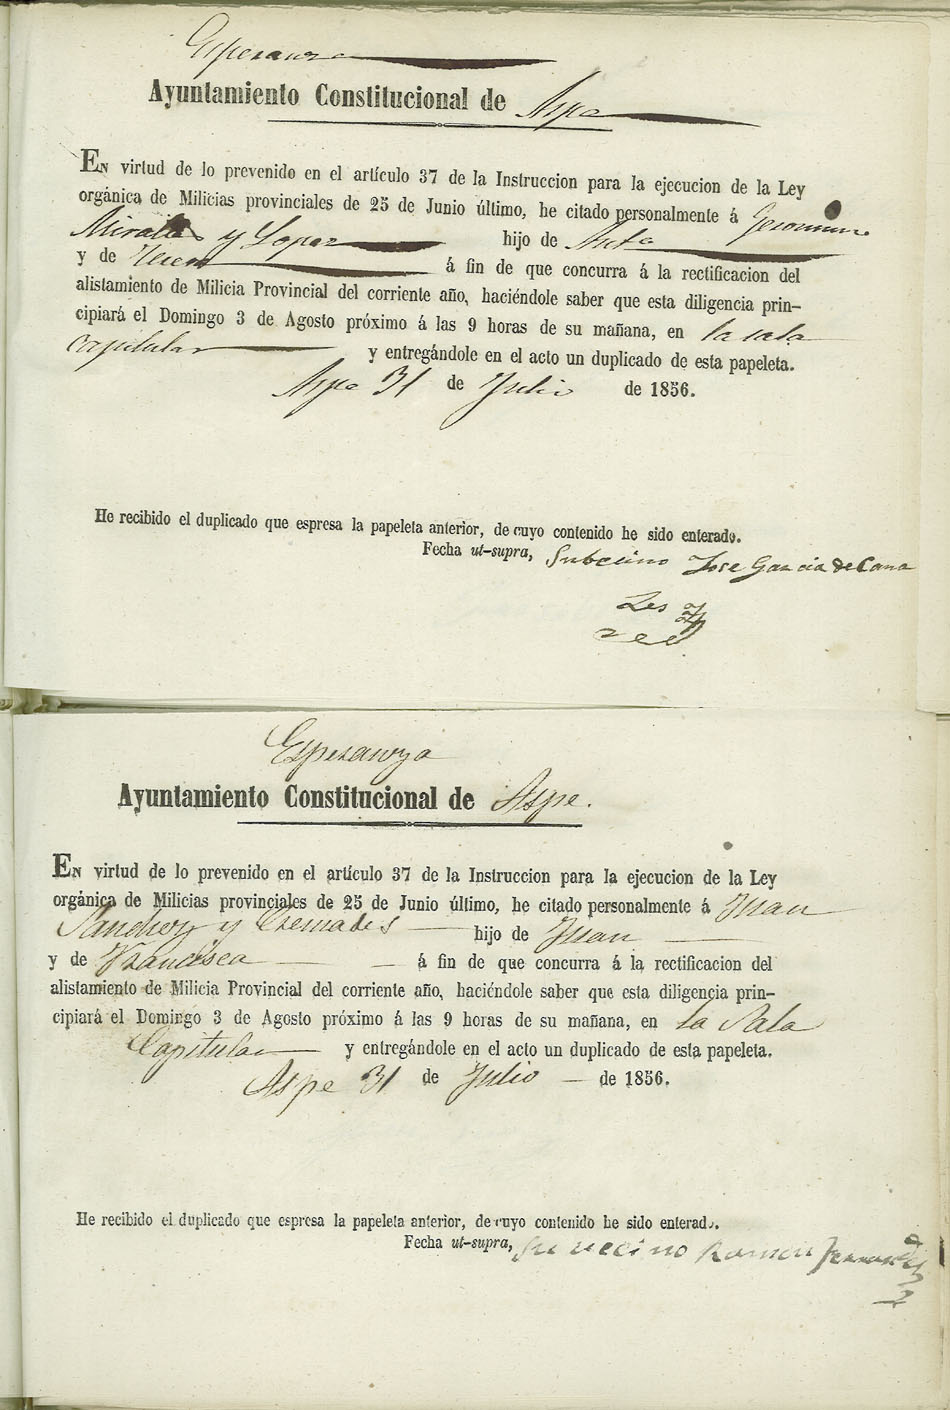 Esperanza
Ayuntamiento Constitucional de Aspe
En virtud de lo prevenido en el artículo 37 de la Instruccion para la ejecucion de la Ley
orgánica de Milicias provinciales de 25 de Junio último, he citado personalmente á Geronimo
Miralles y Lopez hijo de
y de á fin de que concurra á la rectificacion del
alistamiento de Milicia Provincial del corriente año, haciéndole saber que esta diligencia prin-
cipiará el Domingo 3 de Agosto próximo á las 9 horas de su mañana, en la sala
capitular y entregándole en el acto un duplicado de esta papeleta.
Aspe 31 de Julio de 1856.
He recibido el duplicado que espresa la papeleta anterior, de cuyo contenido he sido enterado.
Fecha ut-supra, Jose Garcia de Cana
Les
Esperanza
Ayuntamiento Constitucional de Aspe.
En virtud de lo prevenido en el artículo 37 de la Instruccion para la ejecucion de la Ley
orgánica de Milicias provinciales de 25 de Junio último, he citado personalmente á Juan
Sanchez y Cremades hijo de Juan
y de Francisca á fin de que concurra á la rectificacion del
alistamiento de Milicia Provincial del corriente año, haciéndole saber que esta diligencia prin-
cipiará el Domingo 3 de Agosto próximo á las 9 horas de su mañana, en la Sala
Capitular y entregándole en el acto un duplicado de esta papeleta.
Aspe 31 de Julio de 1856.
He recibido el duplicado que espresa la papeleta anterior, de cuyo contenido he sido enterado.
Fecha ut-supra, Su vecino Ramon Fernandez